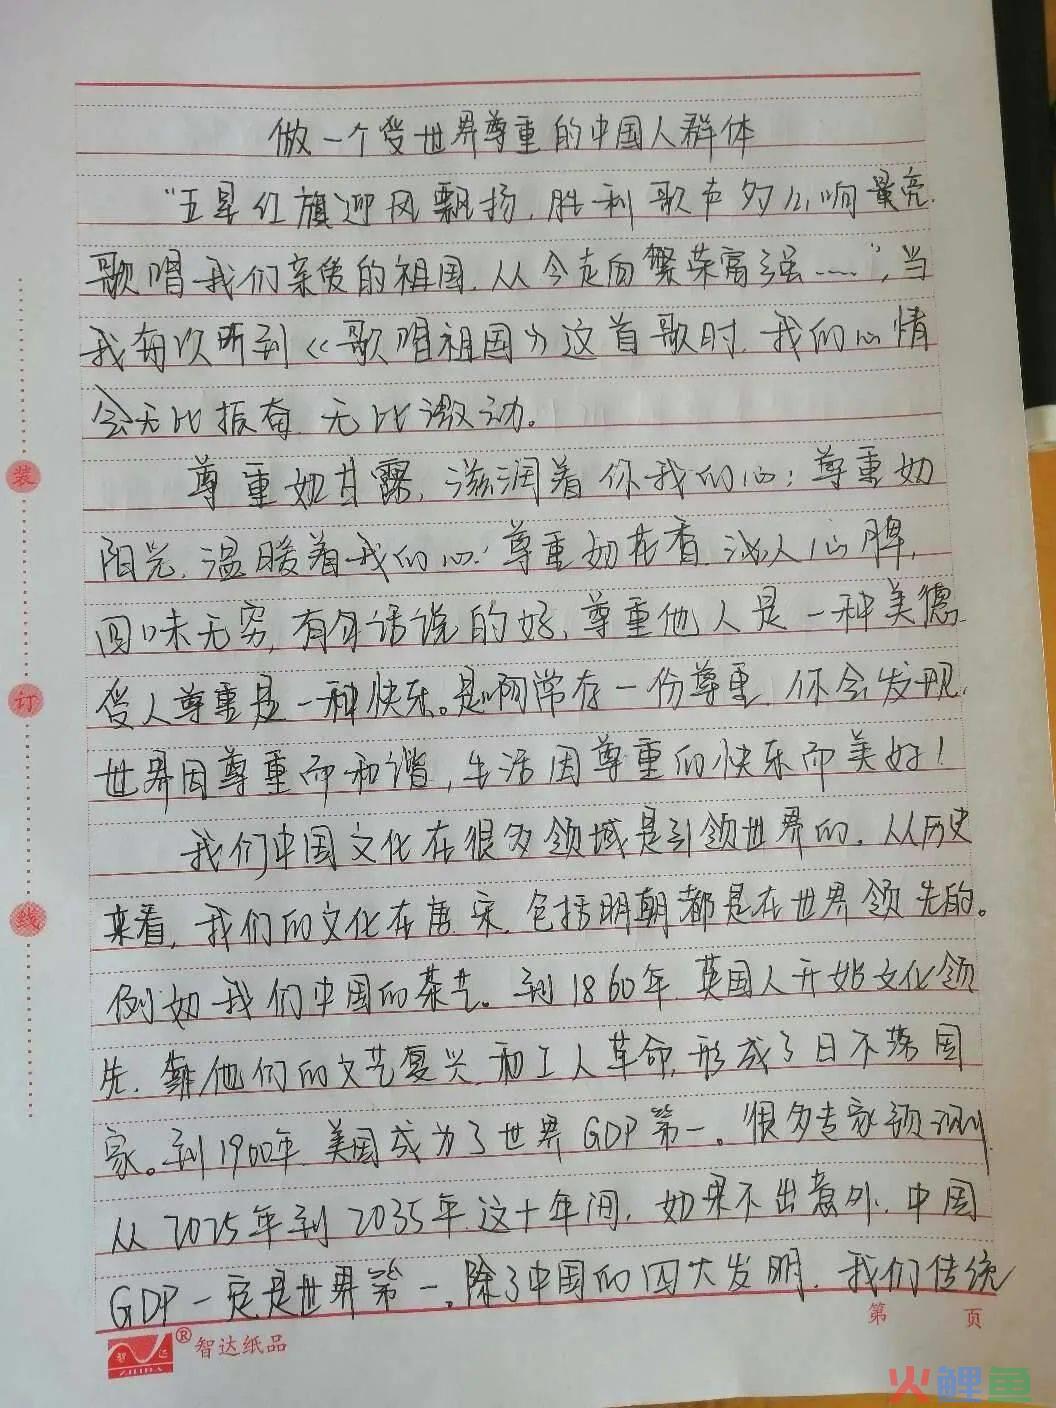 做一个受世界尊重的中国人群体
“五星红旗迎风飘扬,胜利歌声多么响亮,
歌唱我们亲爱的祖国,从今走向繁荣富强……”,当
我每次听到《歌唱祖国》这首歌时,我的心情
会无比振奋,无比激动。
尊重如甘露,滋润着你我的心;尊重如
阳光,温暖着我们心;尊重如花香,沁人心脾,
回味无穷,有句话说的好,尊重他人是一种美德,
受人尊重是一种快乐。是啊常存一份尊重,你会发现,
世界因尊重而和谐,生活因尊重的快乐而美好!
我们中国文化在很多领域是引领世界的,从历史
来看,我们的文化在唐、宋,包括明朝都是在世界领先的。
例如我们中国的茶艺。到1860年,英国人开始文化领
先,他们的文艺复兴和工人革命,形成了日不落国
家。到1900年,美国成为了世界GDP第一。很多专家预测,
从2025年到2035年这十年间,如果不出意外,中国
GDP一定是世界第一。除了中国的四大发明,我们传统
装
订
线
第 页
智达
ZHIDA
®
智达纸品
火鲤鱼